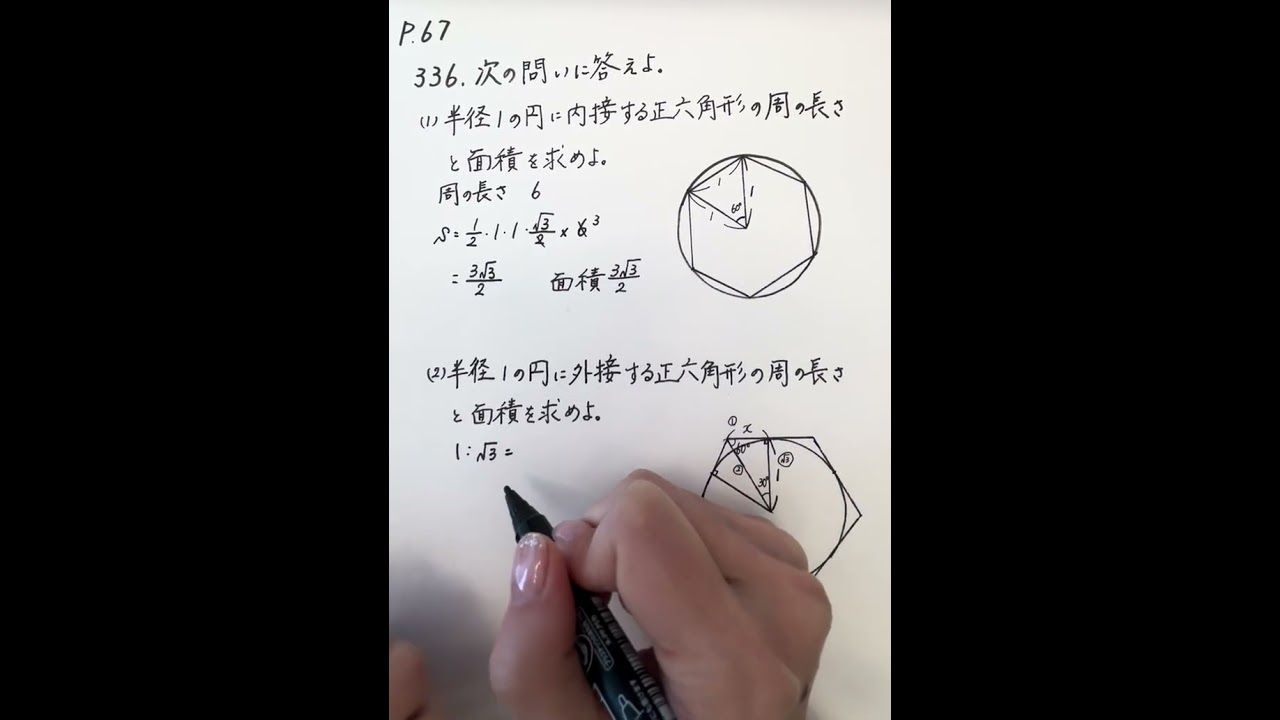 P.67
336. 次の問いに答えよ。
(1) 半径1の円に内接する正六角形の周の長さ
と面積を求めよ。
周の長さ 6
S = 1/2・1・1・√3/2 × 6 3
= 3√3/2 面積 3√3/2
1
1
1
60°
(2) 半径1の円に外接する正六角形の周の長さ
と面積を求めよ。
1:√3=
① x
60°
② √3
30° 1